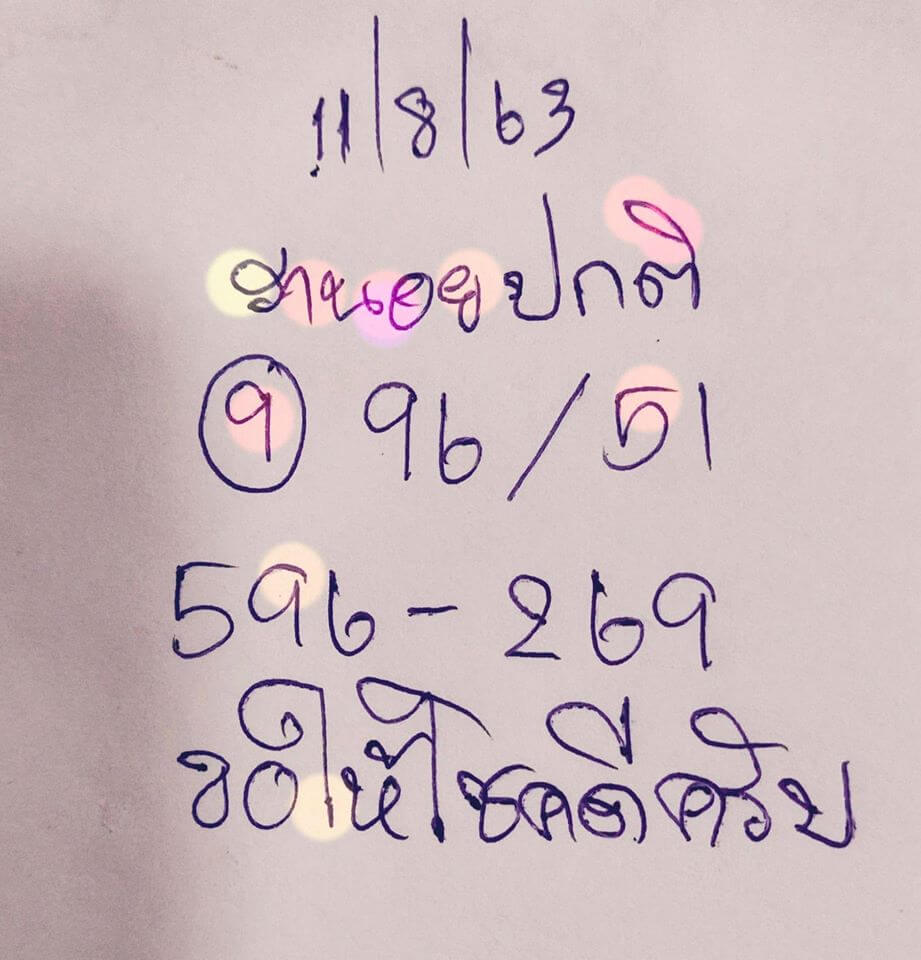 11/8/63
ฮานอยปกติ
9 96/51
596-269
ขอให้โชคดีครับ